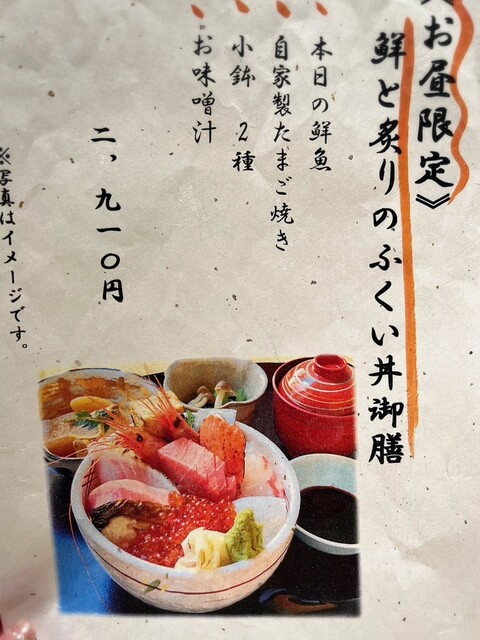 お昼限定》
鮮と炙りのふくい丼御膳
本日の鮮魚
自家製たまご焼き
小鉢 2種
お味噌汁
二,九一〇円
※写真はイメージです。